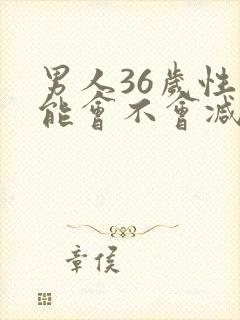 男人36歲性
能會不會減
章侯